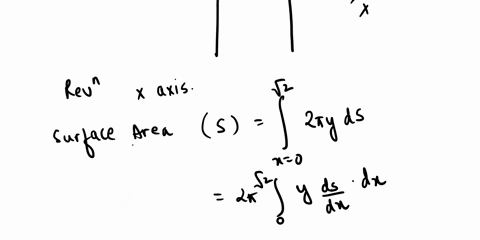 x
Revⁿ x axis.
Surface Area (S) = ∫_{x=0}^{√2} 2πy ds
= 2π ∫_0^{√2} y ds/dx · dx